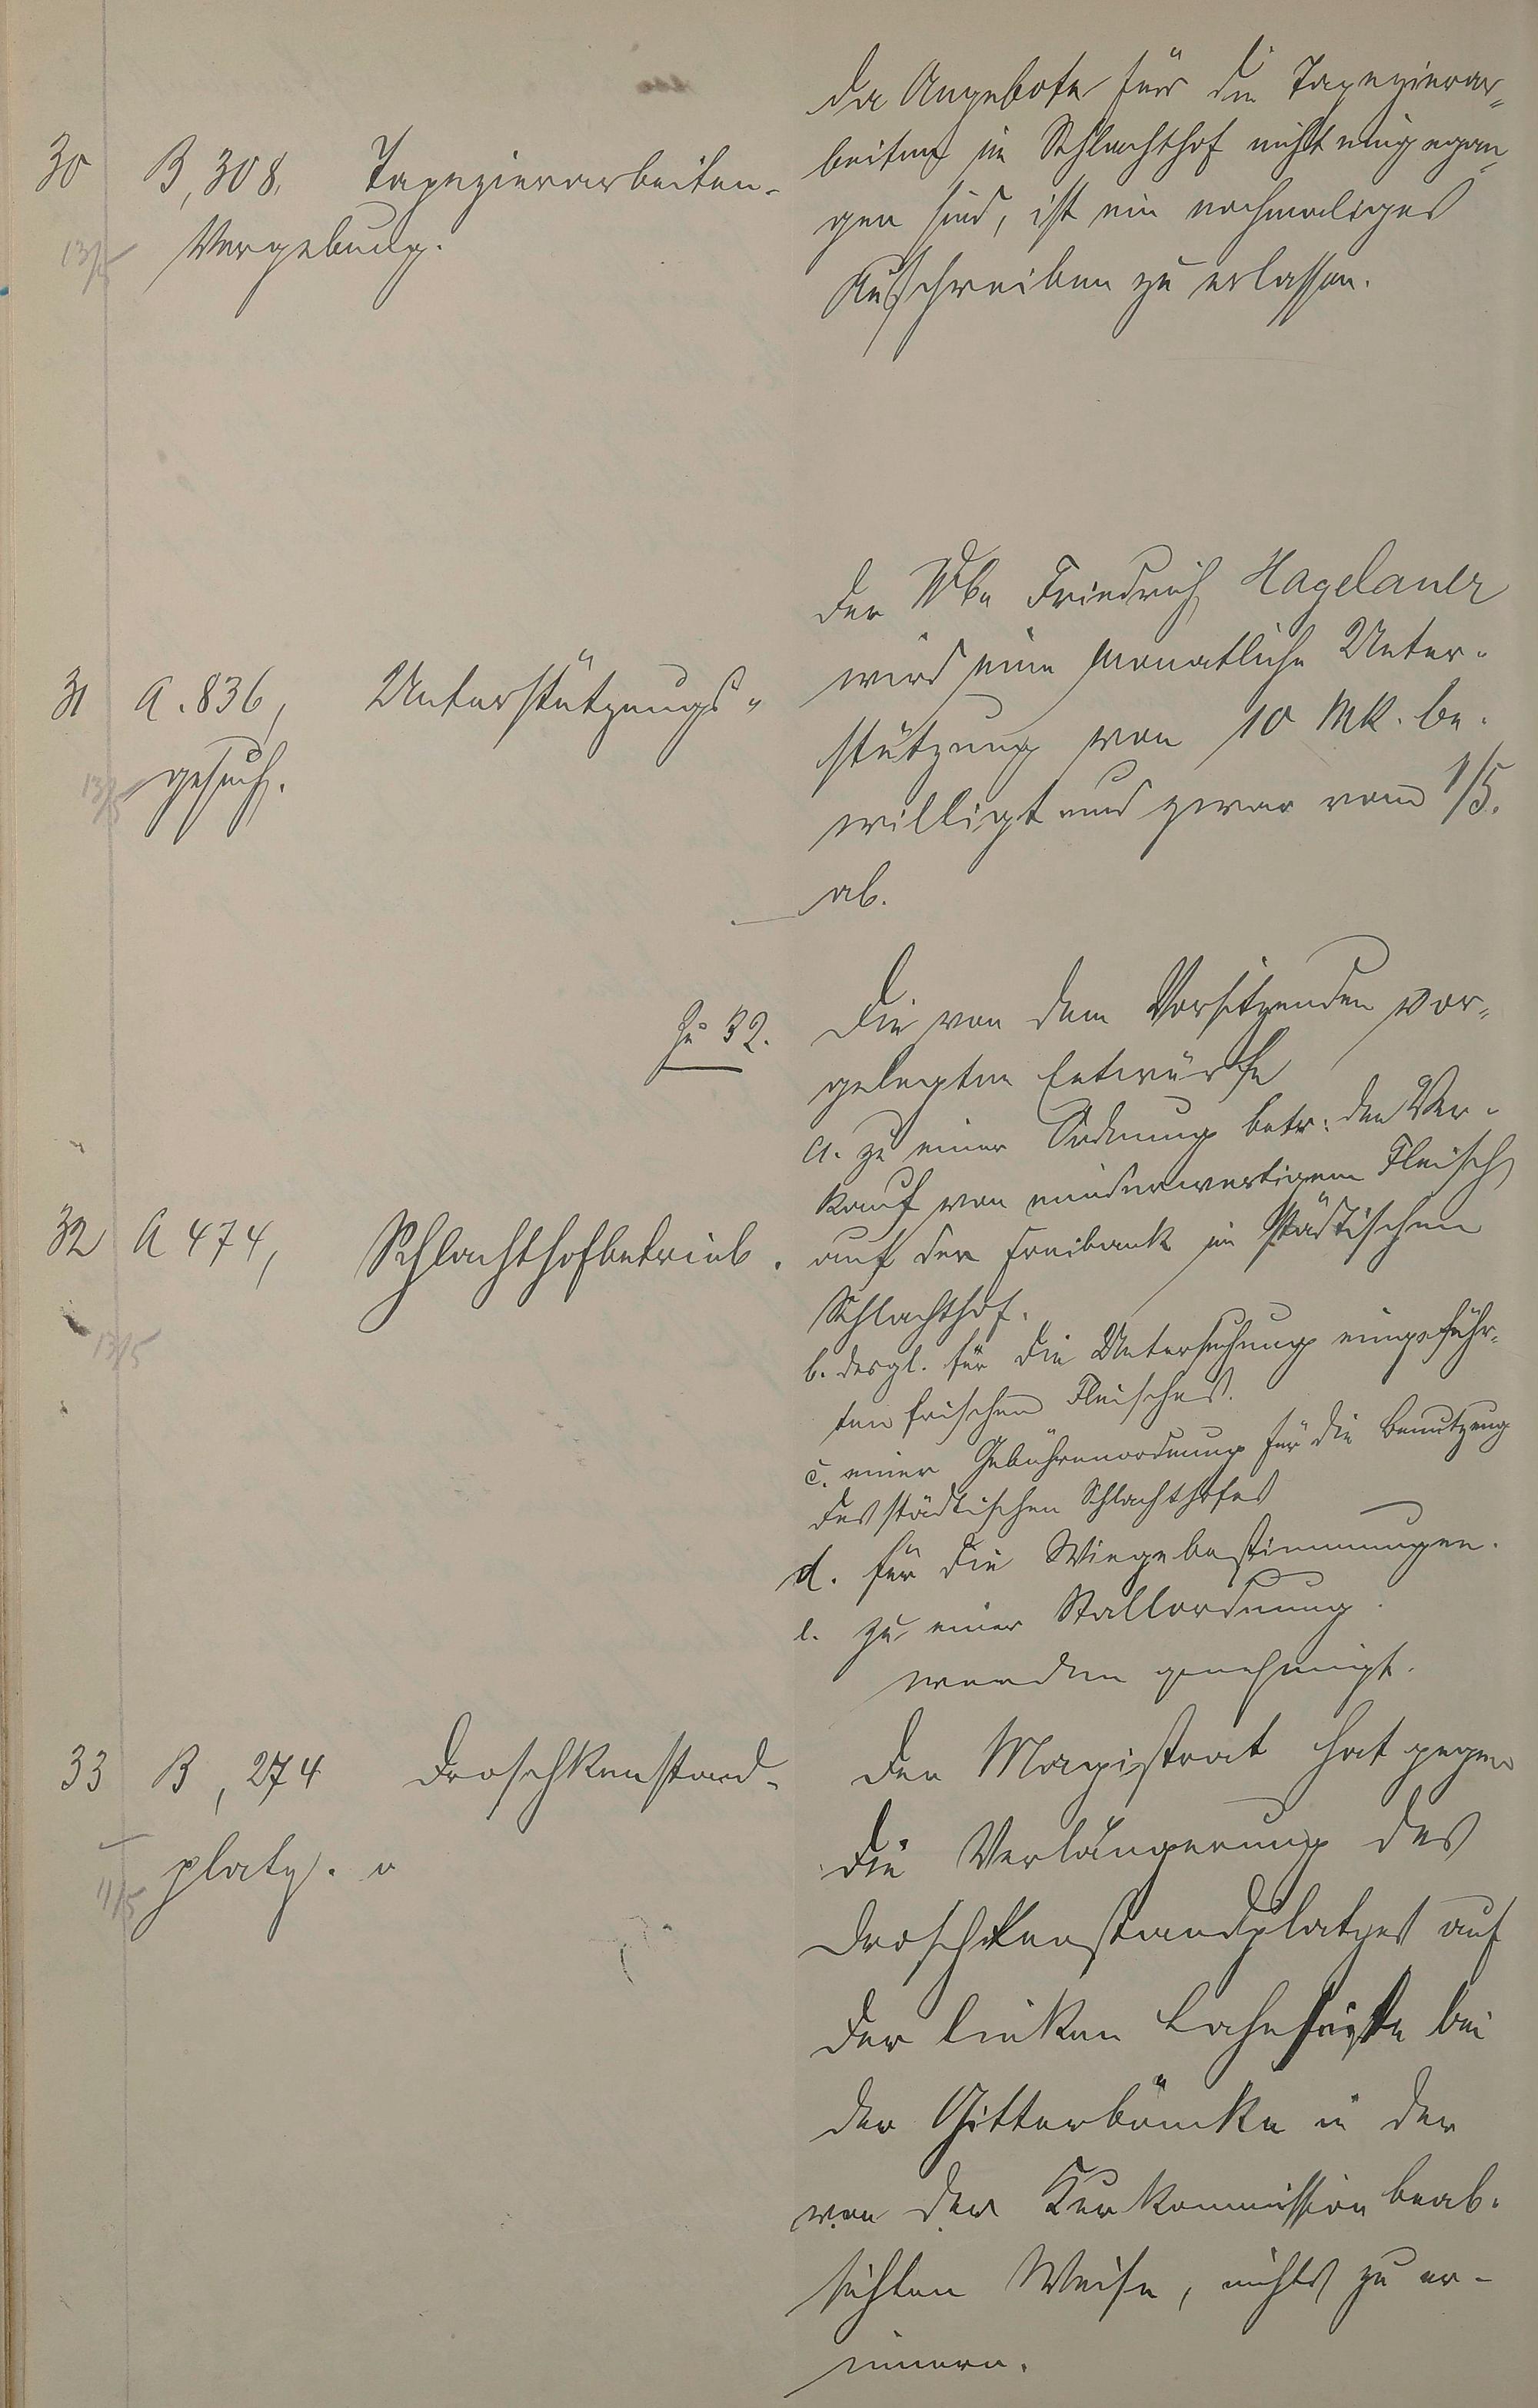 30 B, 308. Tapezierarbeiten-
Vergebung.
13/5
Da Angebote für die Tapezierar-
beiten im Schlachthof nicht eingegan-
gen sind, ist ein nochmaliges
Ausschreiben zu erlassen.
31 A. 836, Unterstützungs-
gesuch.
13/5
Der Wbe Friedrich Hagelauer
wird eine monatliche Unter-
stützung von 10 Mk. be-
willigt und zwar vom 1/5.
ab.
Zu 32.
32 A 474, Schlachthofbetrieb.
13/5
Die von dem Vorsitzenden vor-
gelegten Entwürfe
a. zu einer Ordnung betr: den Ver-
kauf von minderwertigem Fleisch
auf der Freibank im städtischen
Schlachthof.
b. desgl. für die Untersuchung eingeführ-
ten frischen Fleisches.
c. einer Gebührenordnung für die Benutzung
des städtischen Schlachthofes
d. für die Wiegebestimmungen.
e. zu einer Stallordnung.
werden genehmigt.
33 B, 274 Droschkenstand-
platz.
11/5
Der Magistrat hat gegen
die Verlängerung des
Droschkenstandplatzes auf
der linken Lahnseite bei
der Gitterbrücke in der
von der Kurkommission beab-
sichten Weise, nichts zu er-
innern.